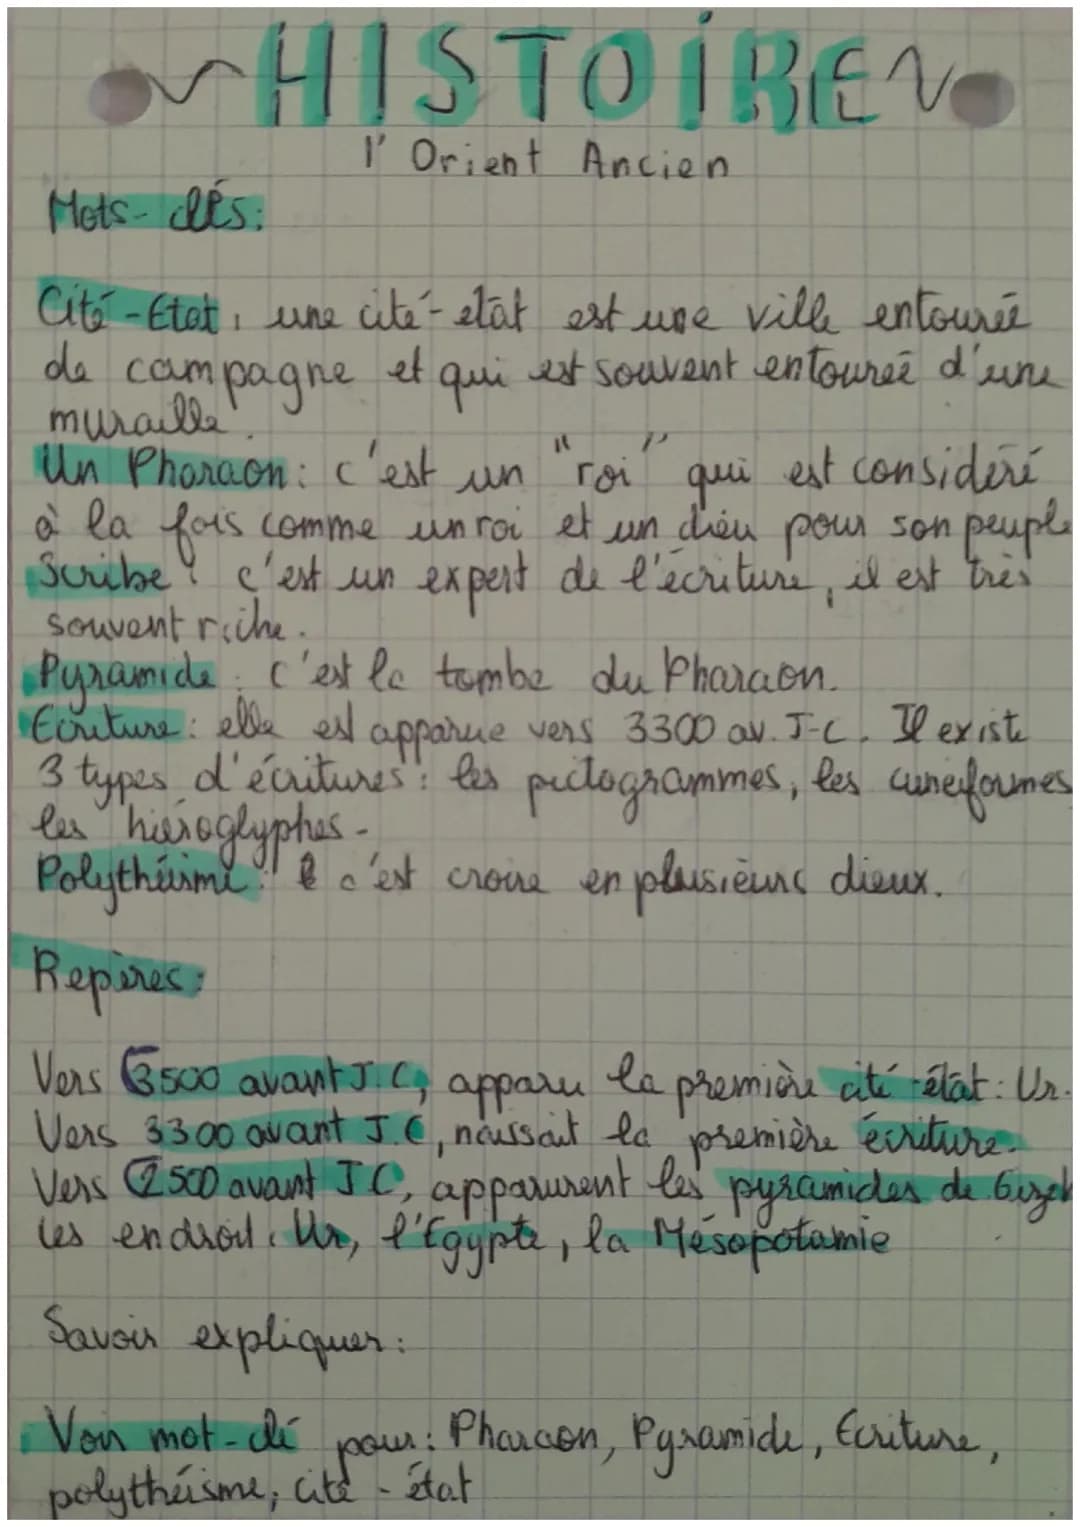 HISTOIRE
l'Orient Ancien
Mots-clés:
Cité-Etat, une cité-état est une ville entourée
de campagne et qui est souvent entourée d'une
muraille.
Un Pharaon: c'est un "roi" qui est considéré
à la fois comme un roi et un dieu pour son peuple
Scribe: c'est un expert de l'écriture, il est très
souvent riche.
Pyramide: c'est la tombe du Pharaon.
Ecriture: elle est apparue vers 3300 av. J-C. Il existe
3 types d'écritures: les pictogrammes, les cuneiformes
les hiéroglyphes.
Polythéisme: c'est croire en plusieurs dieux.
Repères:
Vers 3500 avant J.C, apparu la première cité-état: Ur.
Vers 3300 avant J.C, naissait la première écriture.
Vers 2500 avant J C, apparurent les pyramides de Gizeh
les endroit: Ur, l'Egypte, la Mésopotamie
Savoir expliquer:
Voir mot-clé pour: Pharaon, Pyramide, Ecriture,
polythéisme, cité-état